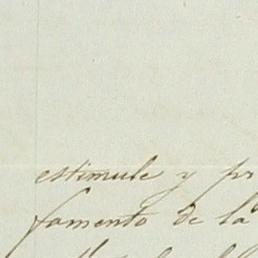 estimule y pr
fomento de la